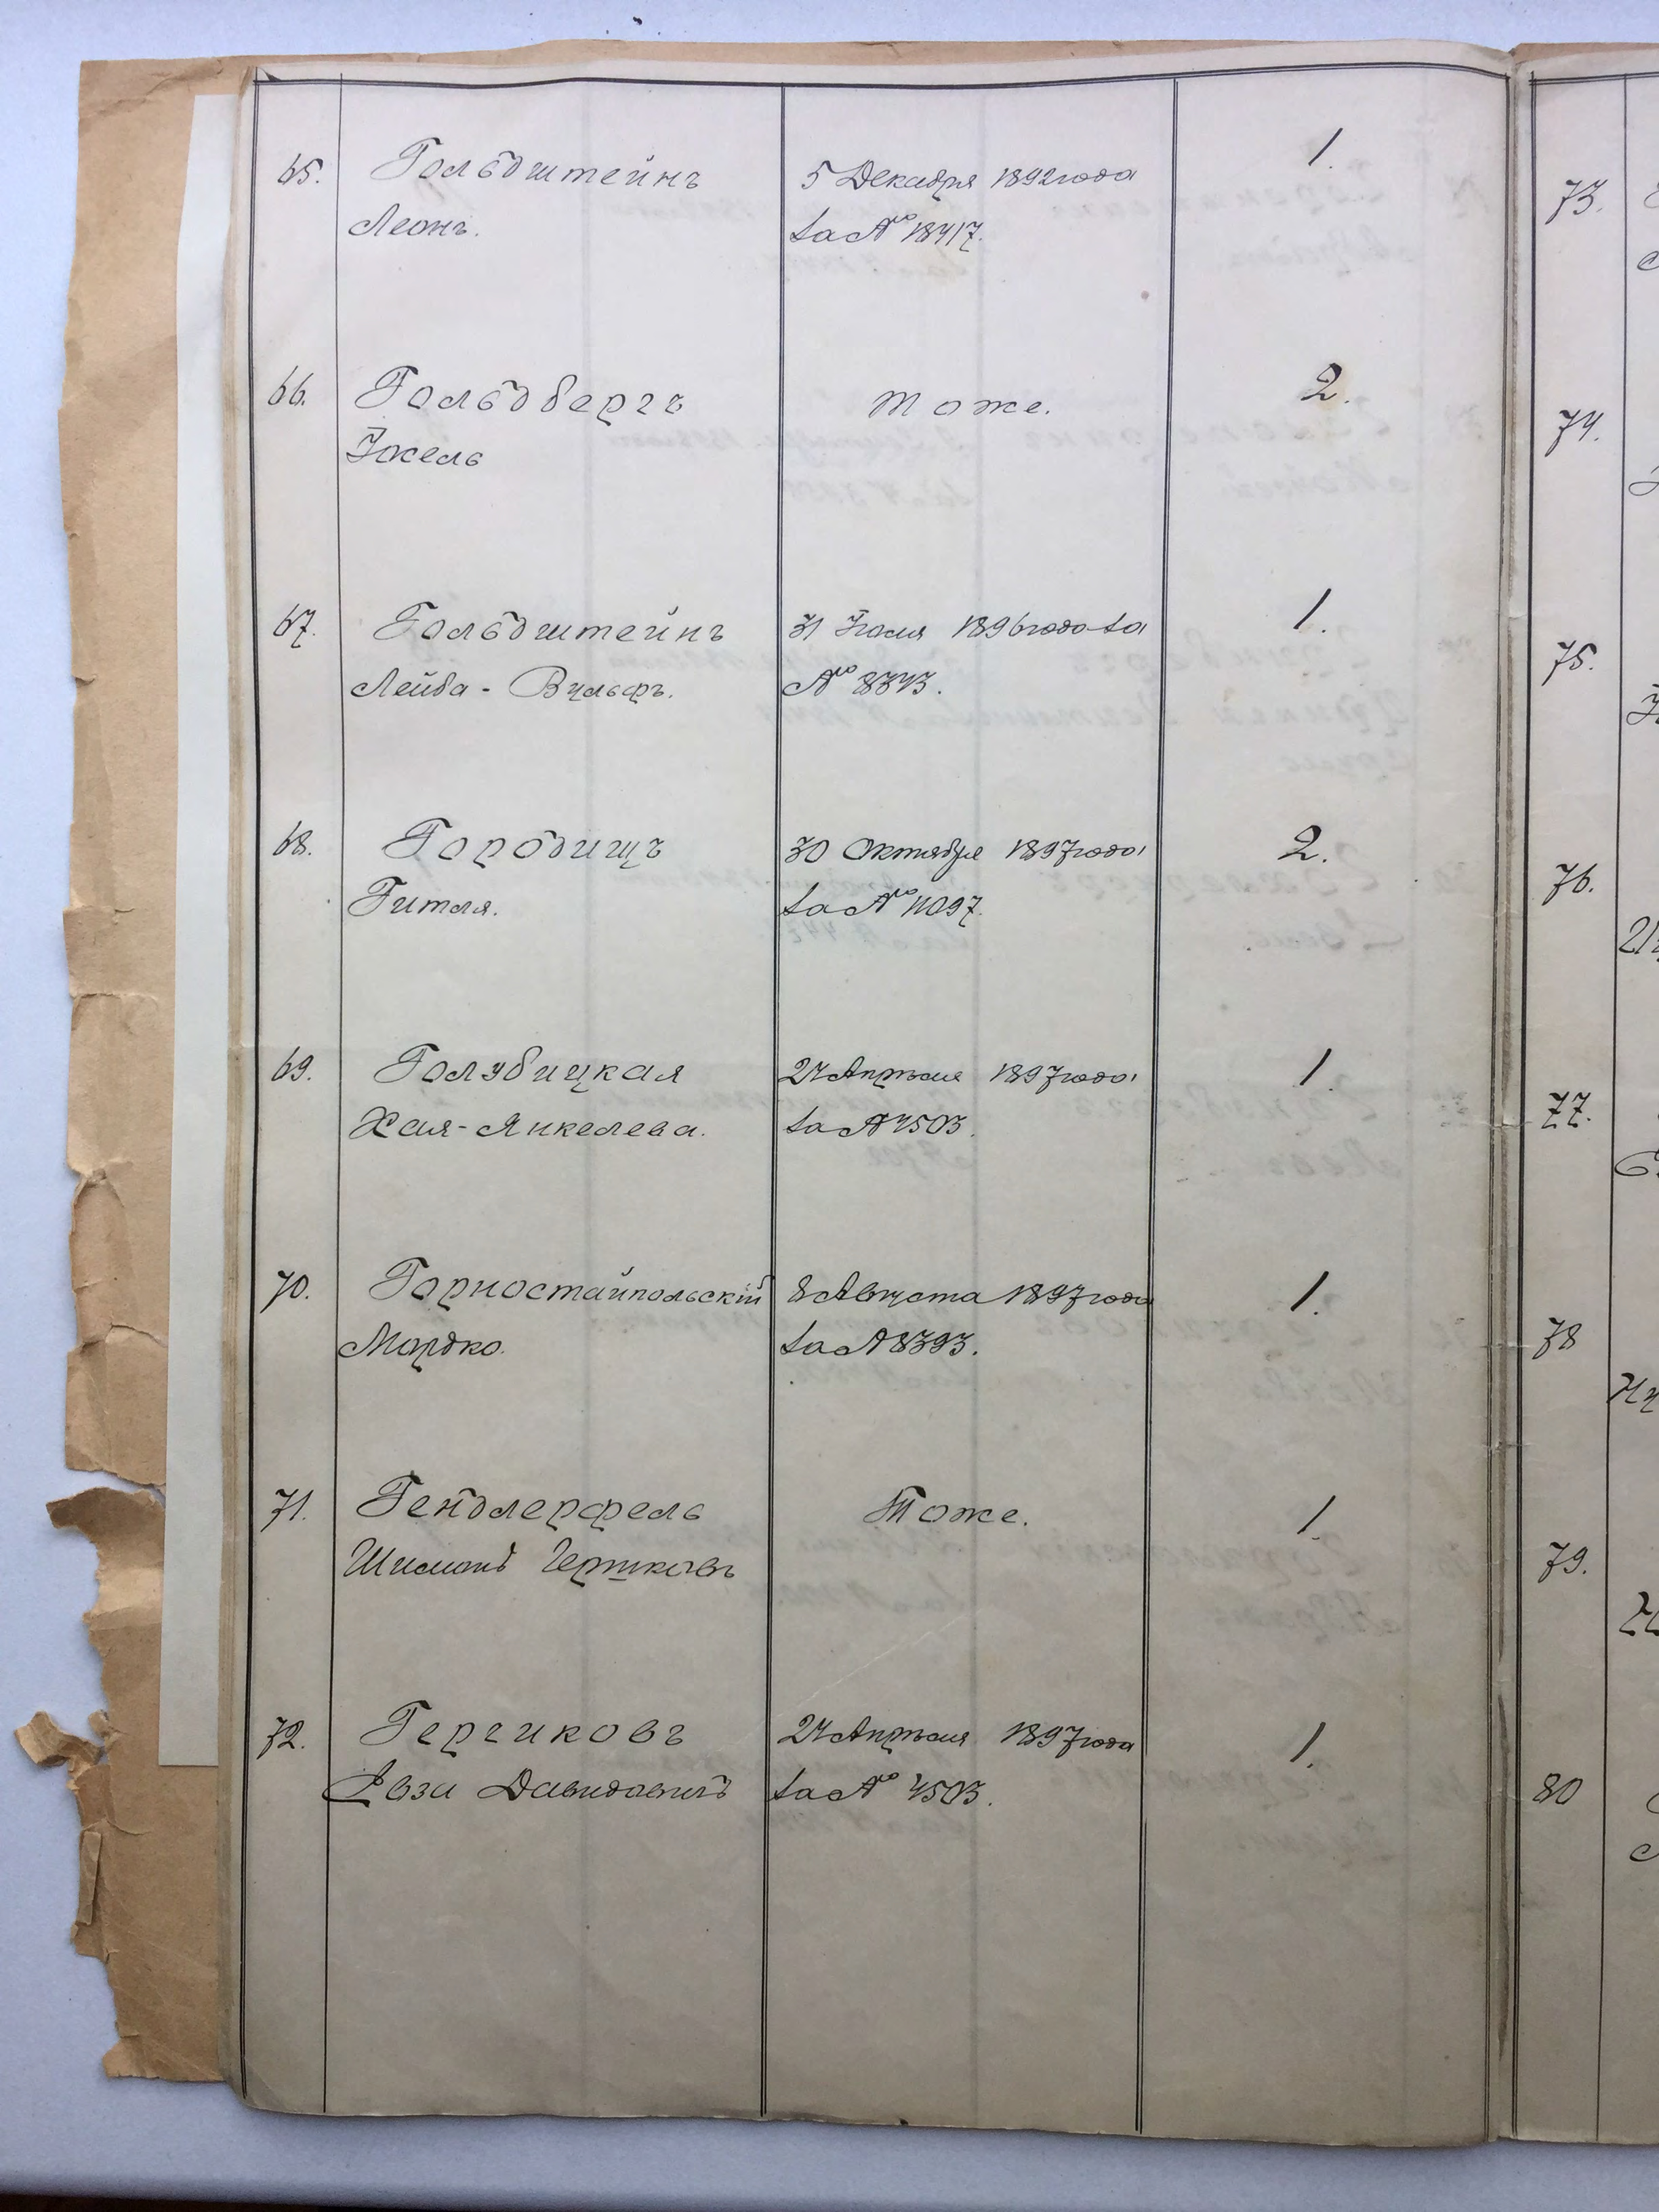 65. Гольдштейнъ 5 Декабря 1892 года 1.
Леонъ. за № 13417.
66. Гольдбергъ Тоже. 2.
Іосель
67. Гольдштейнъ 31 Іюля 1896 года за 1.
Лейба - Вульфъ. № 8343.
68. Городищъ 30 Октября 1897 года 2.
Гитля. за № 11097.
69. Голубицкая 24 Апрѣля 1897 года 1.
Хая - Янкелева. за № 4503.
70. Горностайпольскій 8 Августа 1897 года 1.
Мордко. за № 8393.
71. Гендлерфель Тоже. 1.
Шимонъ Гершковъ
72. Герчиковъ 24 Апрѣля 1897 года 1.
Евзи Давидовичъ за № 4503.
73.
74.
75.
76.
77.
78
79.
80